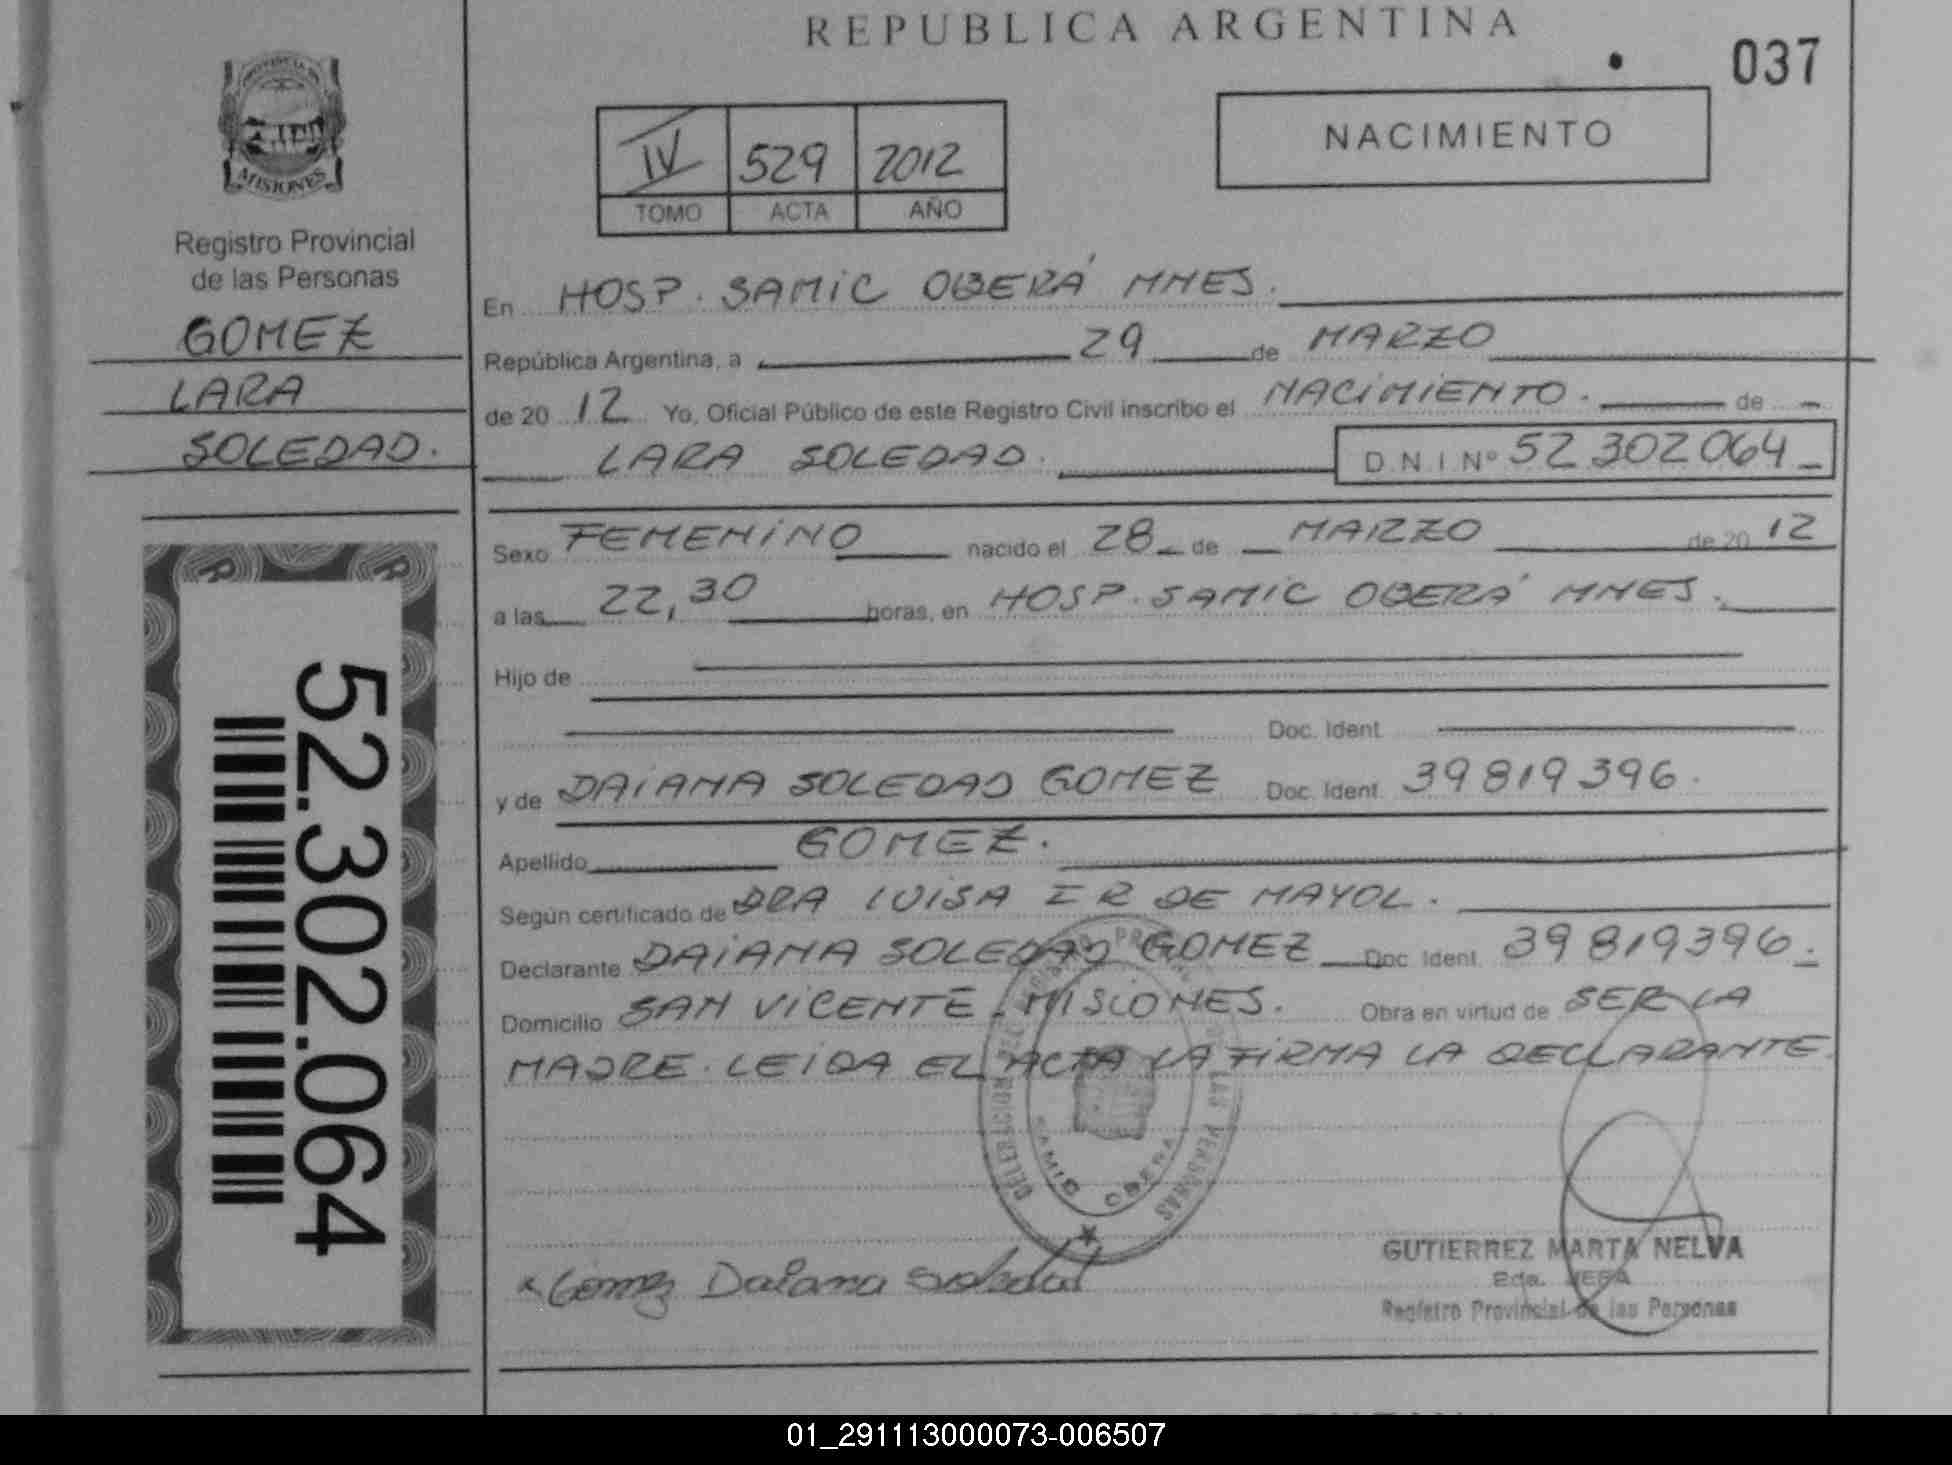 REPUBLICA ARGENTINA
037
PROVINCIA DE
MISIONES
Registro Provincial
de las Personas
GOMEZ
LARA
SOLEDAD.
IV 529 2012
TOMO ACTA AÑO
NACIMIENTO
En HOSP. SAMIC OBERÁ MNES.
República Argentina, a 29 de MARZO
de 20 12 Yo, Oficial Público de este Registro Civil inscribo el NACIMIENTO. de
LARA SOLEDAD. D.N.I Nº 52 302 064
Sexo FEMENINO nacido el 28 de MARZO de 20 12
a las 22,30 horas, en HOSP. SAMIC OBERÁ MNES.
Hijo de
Doc. Ident
y de DAIANA SOLEDAD GOMEZ Doc. Ident. 39 819 396.
Apellido GOMEZ.
Según certificado de DRA LUISA DE MAYOL.
Declarante DAIANA SOLEDAD GOMEZ Doc. Ident. 39 819396.
Domicilio SAN VICENTE - MISIONES. Obra en virtud de SER LA
MADRE. LEIDA EL ACTA LA FIRMA LA DECLARANTE.
DE LAS PERSONAS
SAMIC OBERA
x Gomez Daiana Soledad
GUTIERREZ MARTA NELVA
2da. JEFA
Registro Provincial de las Personas
52.302.064
01_291113000073-006507